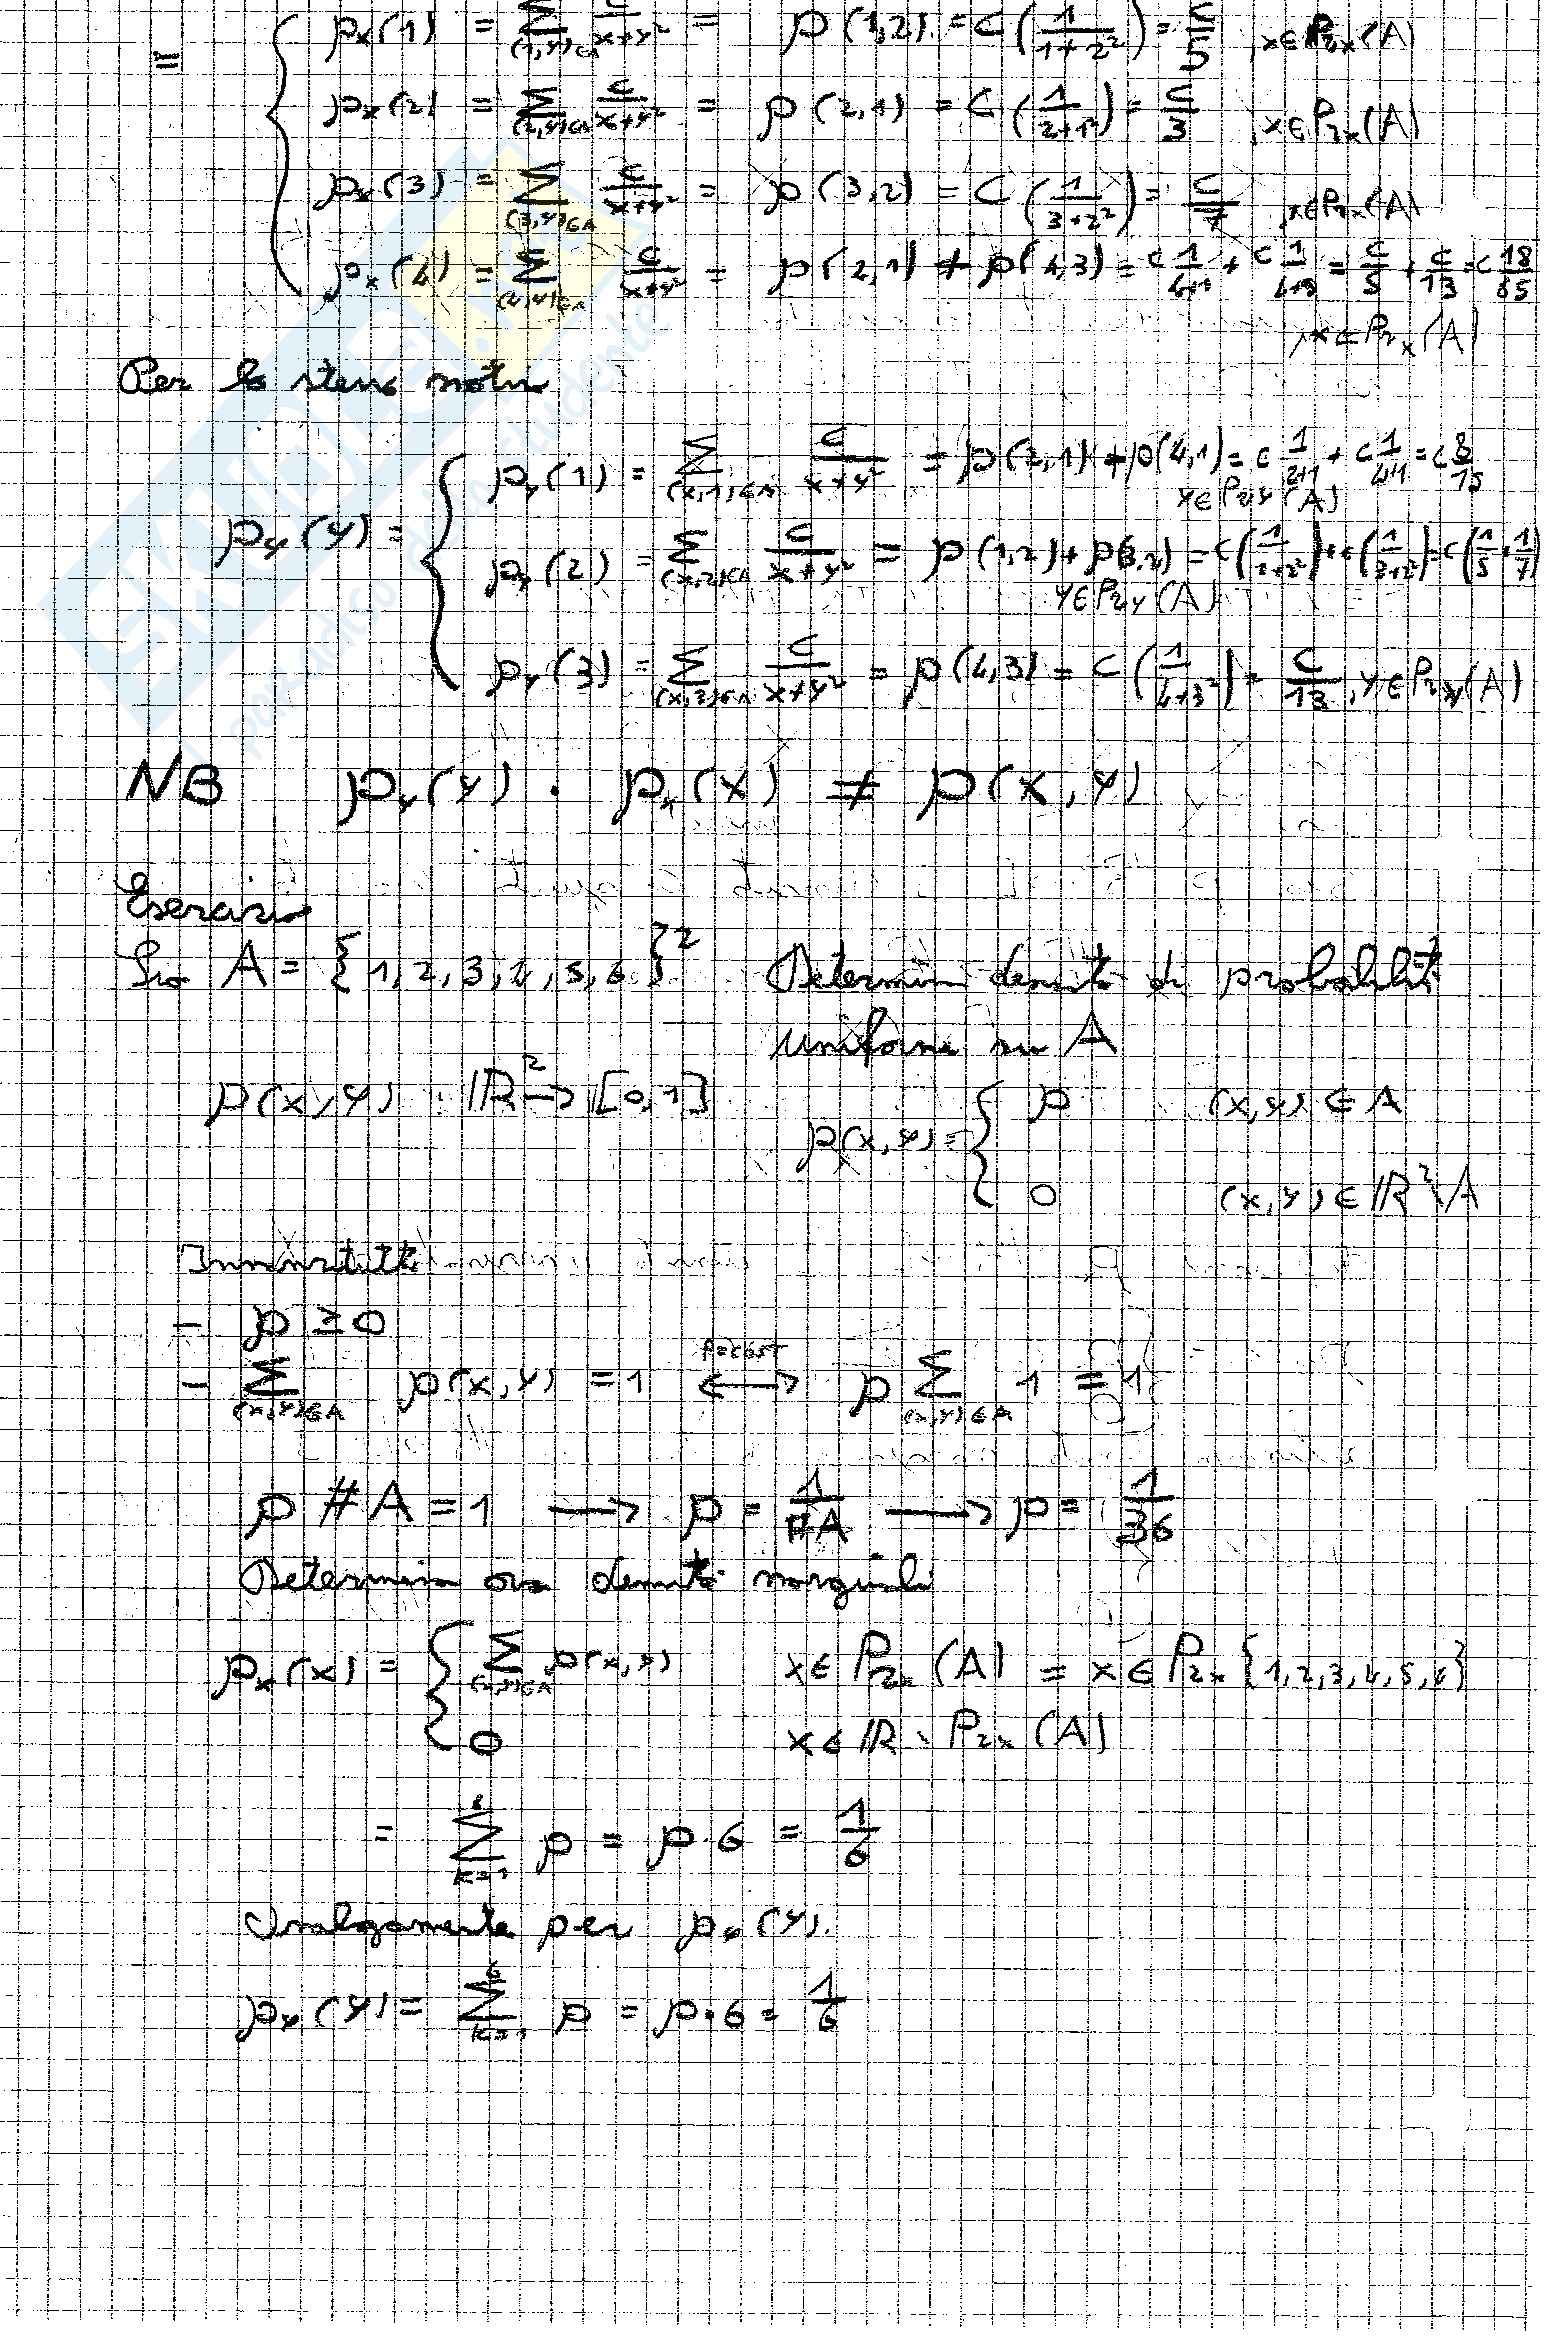 = { p_x(1) = Σ_{(1,y)∈A} c/(x+y²) = p(1,2) = c(1/(1+2²)) = c/5 , x∈Pr_x(A)
p_x(2) = Σ_{(2,y)∈A} c/(x+y²) = p(2,1) = c(1/(2+1²)) = c/3 , x∈Pr_x(A)
p_x(3) = Σ_{(3,y)∈A} c/(x+y²) = p(3,2) = c(1/(3+2²)) = c/7 , x∈Pr_x(A)
p_x(4) = Σ_{(4,y)∈A} c/(x+y²) = p(2,1) + p(4,3) = c 1/(4+1) + c 1/(4+9) = c/5 + c/13 = c 18/65
, x∈Pr_x(A)
Per lo stesso motivo
p_y(y) = { p_y(1) = Σ_{(x,1)∈A} c/(x+y²) = p(2,1) + p(4,1) = c 1/(2+1) + c 1/(4+1) = c 8/15
y∈Pr_y(A)
p_y(2) = Σ_{(x,2)∈A} c/(x+y²) = p(1,2) + p(3,2) = c(1/(1+2²)) + c(1/(3+2²)) = c(1/5 + 1/7)
y∈Pr_y(A)
p_y(3) = Σ_{(x,3)∈A} c/(x+y²) = p(4,3) = c(1/(4+3²)) = c/13 , y∈Pr_y(A)
NB p_y(y) · p_x(x) ≠ p(x,y)
Esercizio
Sia A = {1,2,3,4,5,6}² Determin densità di probabilità
uniforme su A
p(x,y) : ℝ² → [0,1]
p(x,y) = { p (x,y) ∈ A
0 (x,y) ∈ ℝ²\A
Innanzitutto
- p ≥ 0
- Σ_{(x,y)∈A} p(x,y) = 1 ⟷^{p=cost} p Σ_{(x,y)∈A} 1 = 1
p #A = 1 → p = 1/#A → p = 1/36
Determin ora densità marginali
p_x(x) = { Σ_{(x,y)∈A} p(x,y) x∈Pr_x(A) = x∈Pr_x{1,2,3,4,5,6}
0 x∈ℝ \ Pr_x(A)
= Σ_{k=1}^{6} p = p·6 = 1/6
Analogamente per p_y(y).
p_y(y) = Σ_{k=1}^{6} p = p·6 = 1/6